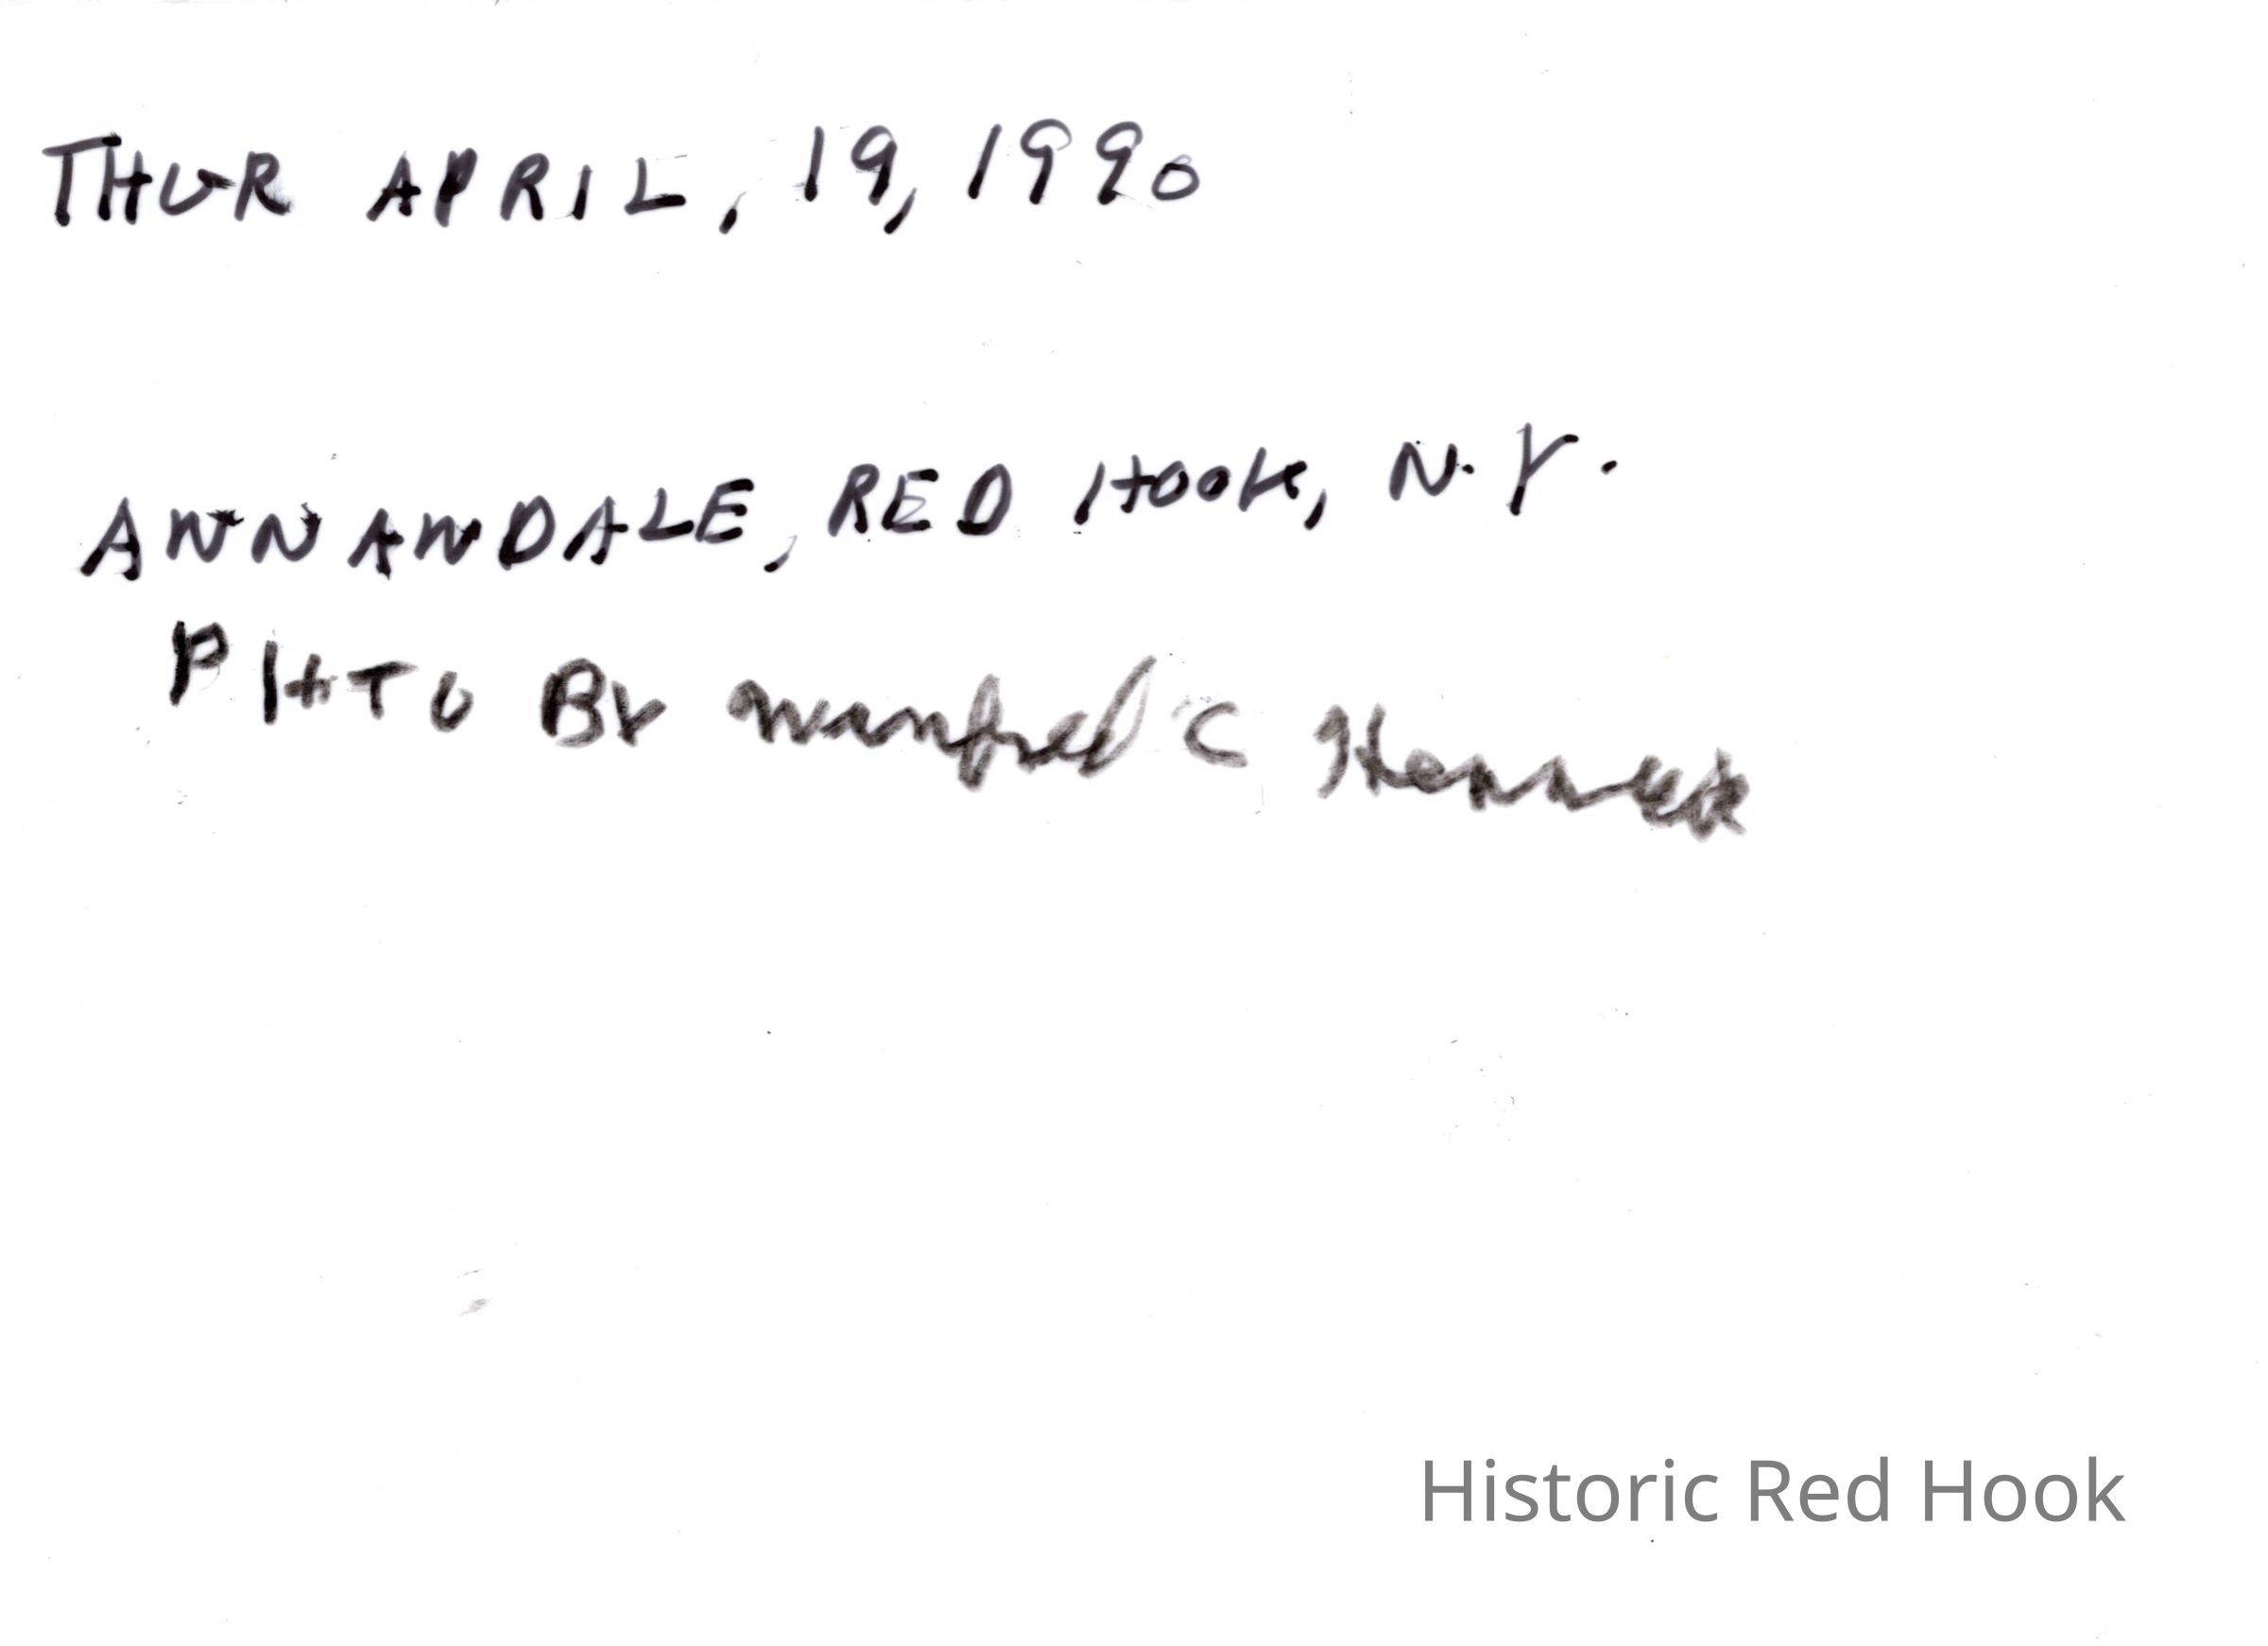 THUR APRIL, 19, 1990
ANNANDALE, RED HOOK, N.Y.
PHTO BY Winfred C
Historic Red Hook